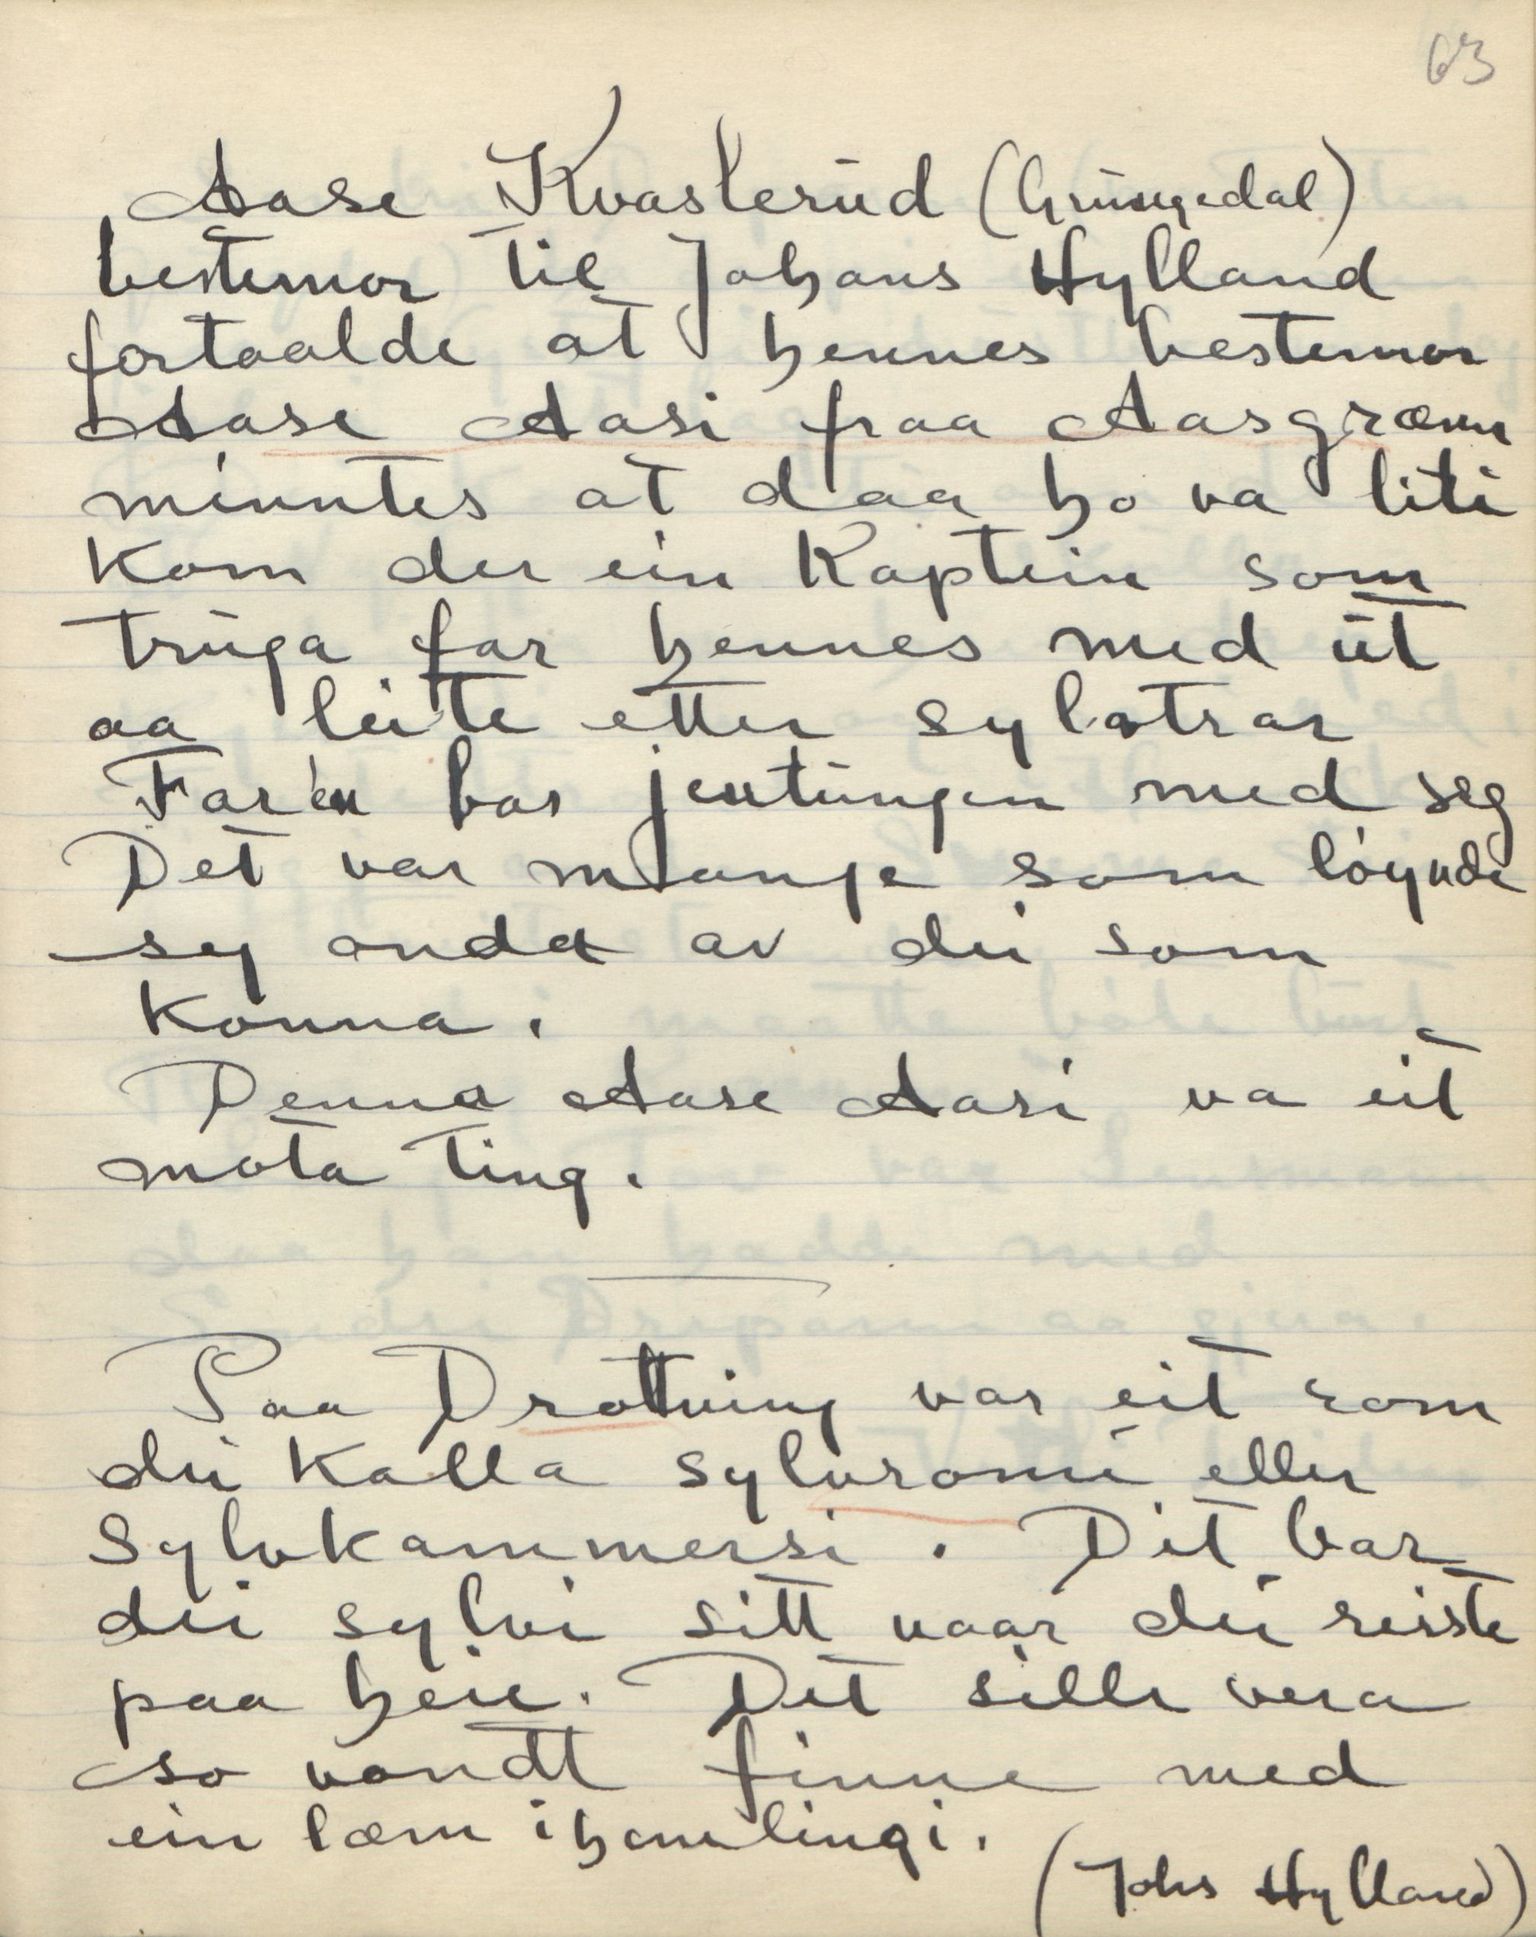 63
Aase Kvasterud (Grungedal)
bestemor til Johans Hylland
fortaalde at hennes bestemor
Aase Aasi fraa Aasgrænn
minntes at daa ho va liti
kom der ein Kaptein som
truga far hennes med ut
aa leite etter sylotrar
Far'en bar jentungen med seg
Det var mange som løynde
sy onda av dei som
konna.
Denna Aase Aasi va eit
mota ting.
Paa Drottning var eit rom
dei kalla sylvromi eller
Sylvkammersi. Dit bar
dei sylvi sitt naar dei reiste
paa heie. Det sille vera
so vondt finne med
ein læm i hemlingi.
(Johs Hylland)